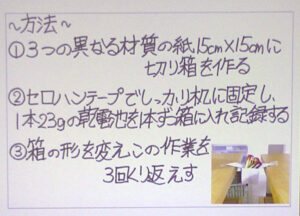 ～方法～
①3つの異なる材質の紙15cm×15cmに
切り箱を作る
②セロハンテープでしっかり机に固定し、
1本23gの乾電池を1本ずつ箱に入れ記録する
③箱の形を変え、この作業を
3回くり返えす